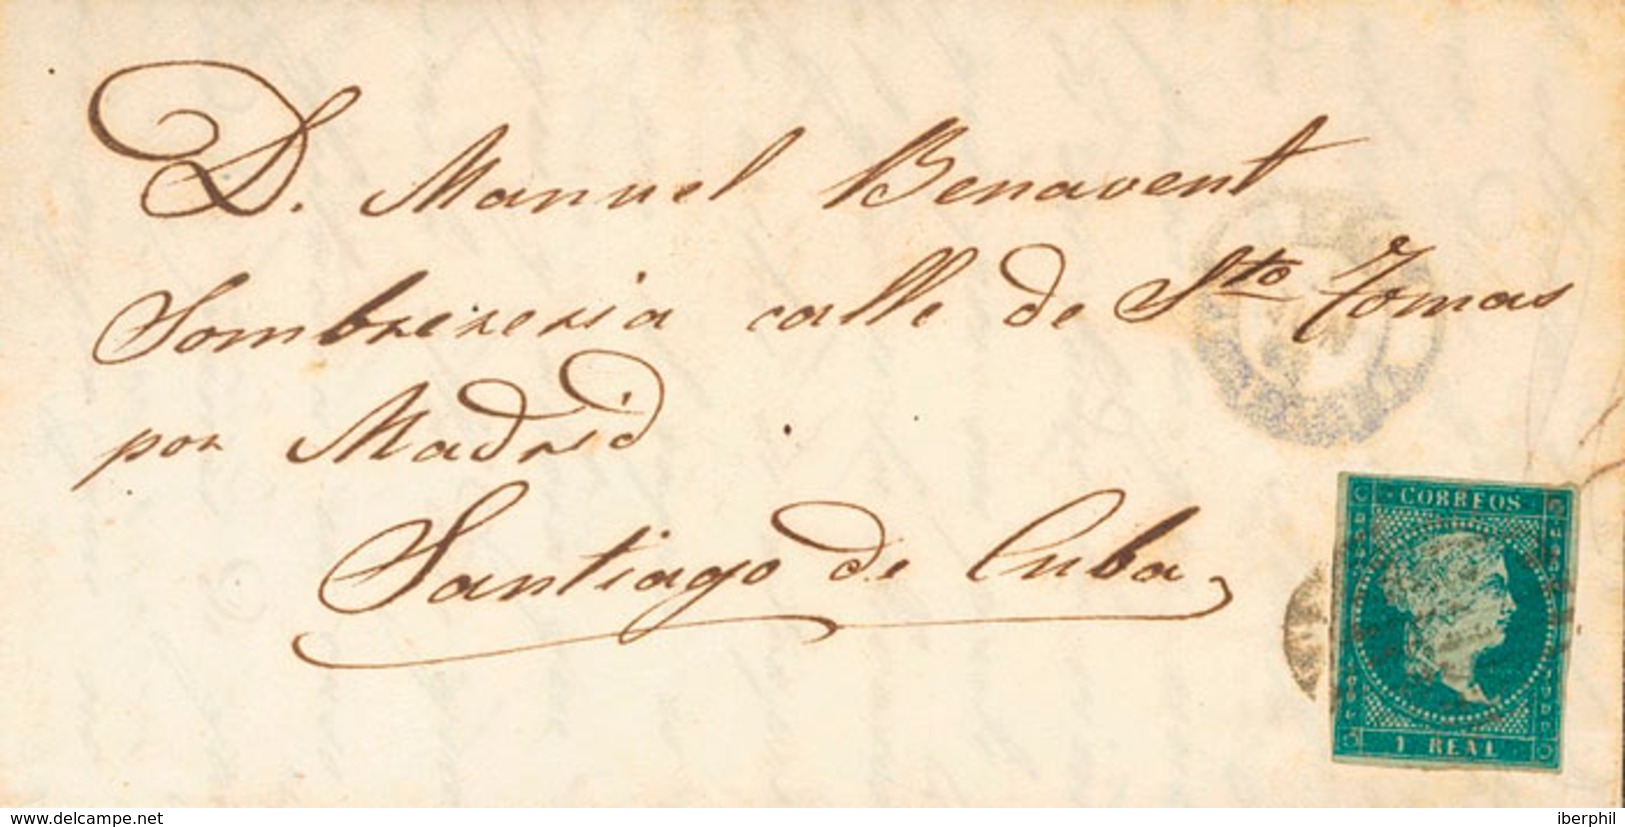 D. Manuel Benavent
Sombrereria calle de Sto Tomas
por Madrid
Santiago de Cuba
CORREOS
1 REAL
www.delcampe.net
iberphil